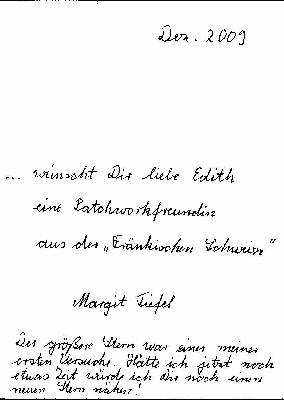 Dez. 2009
... wünscht Dir liebe Edith
eine Patchworkfreundin
aus der „Fränkischen Schweiz"
Margit Tiefel
Der größere Stern war einer meiner
ersten Versuche. Hätte ich jetzt noch
etwas Zeit würde ich dir noch einen
neuen Stern nähen!